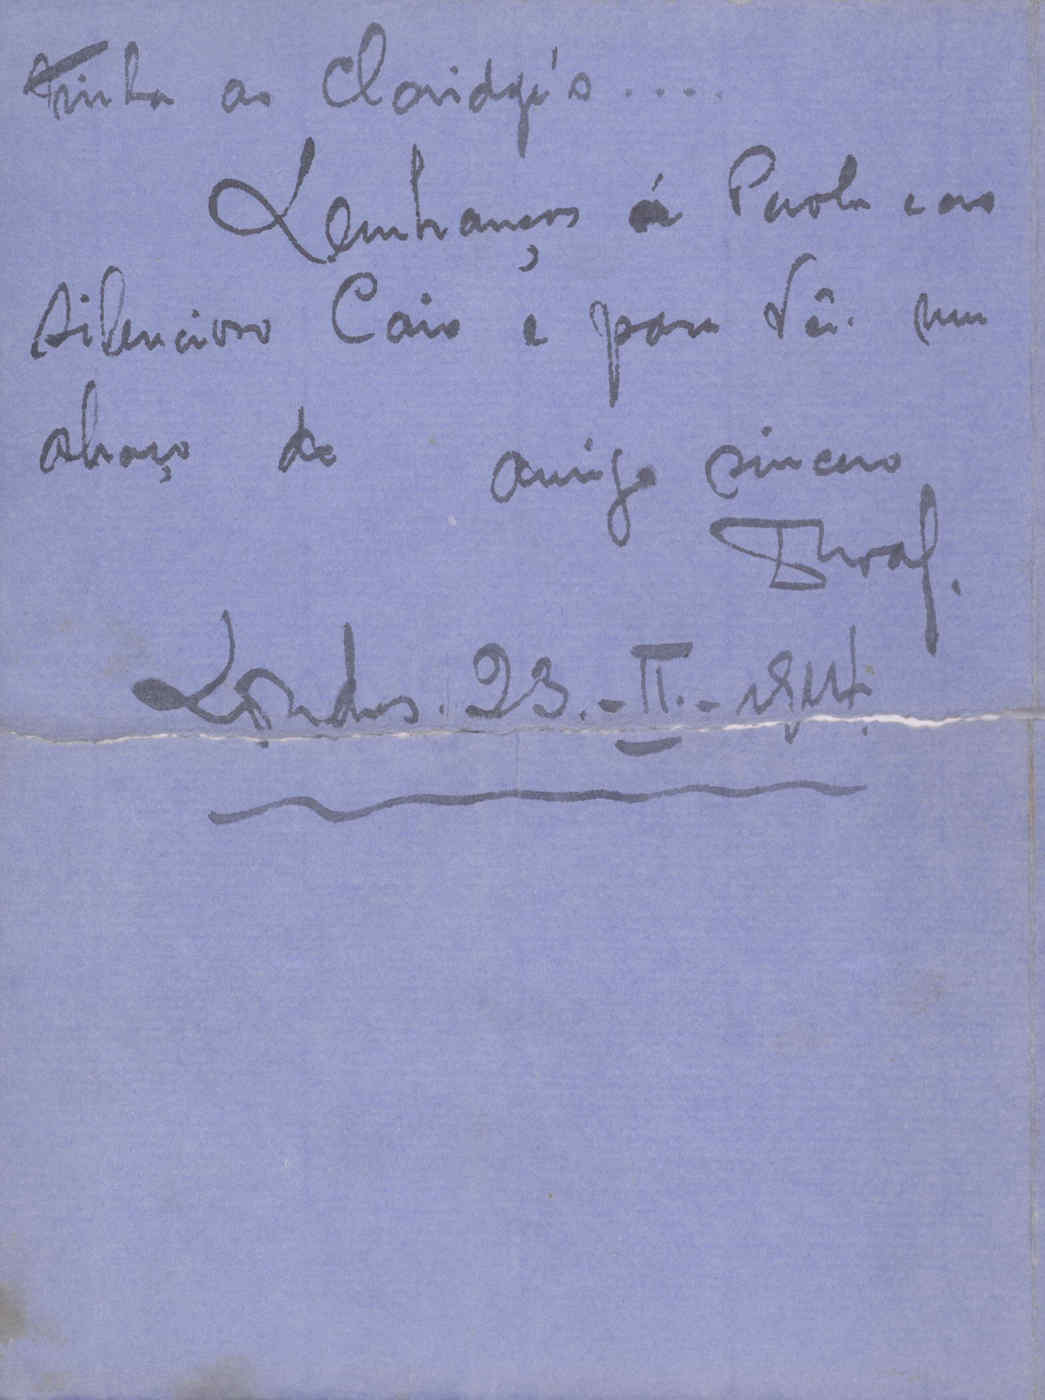 Tinha ao Claridge's.....
Lembranças á Paola e ao
silencioso Caio e para Você um
abraço do amigo sincero
Londres. 23.-II.-1914.